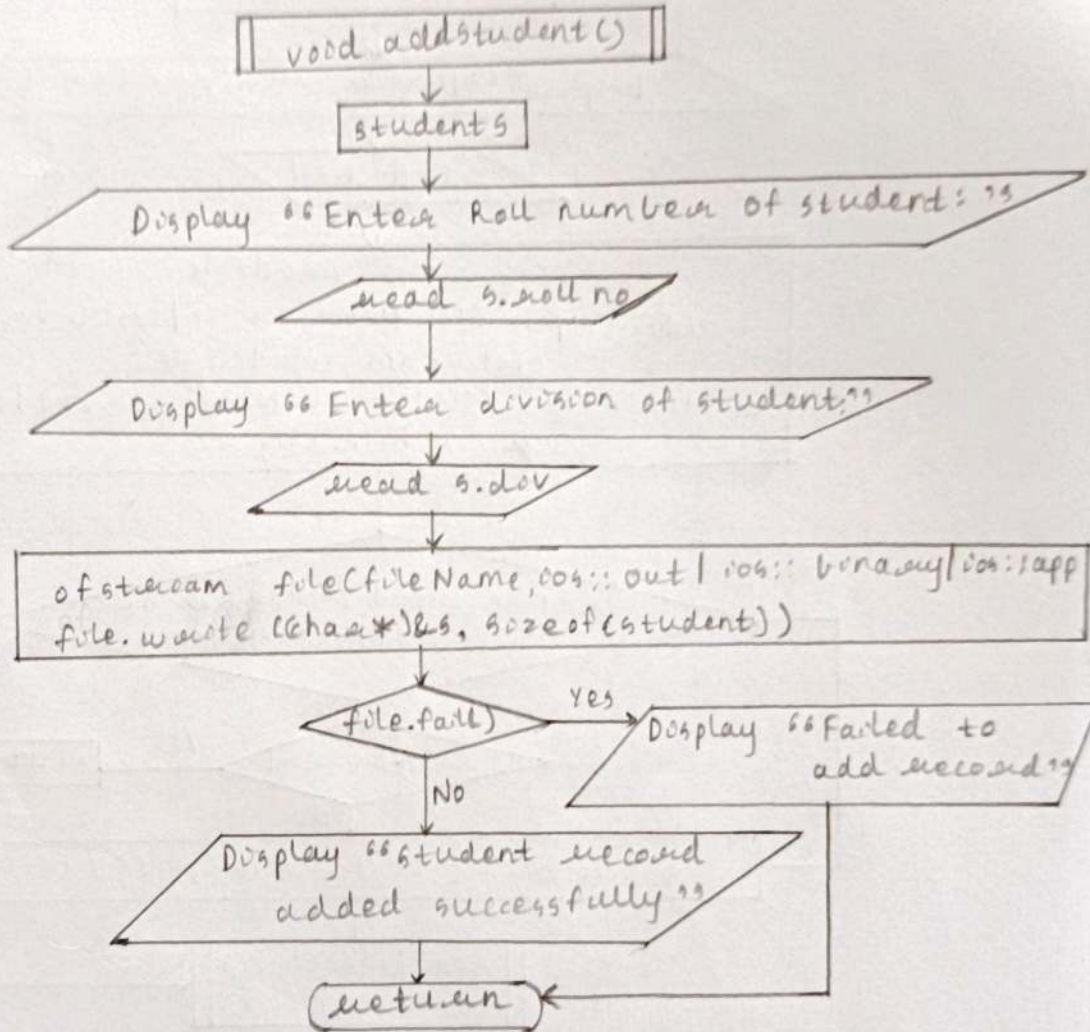 void addstudent()
student s
Display “Enter Roll number of student: ”
read s.roll no
Display “Enter division of student:”
read s.div
ofstream file(fileName, ios:: out | ios:: binary | ios::app
file.write ((char*)&s, sizeof(student))
file.fail()
Yes
Display “Failed to
add record”
No
Display “student record
added successfully”
return